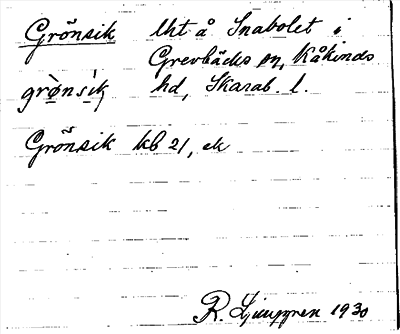 Grönsik lht å Snabolet i
Grevbäcks sn, Kåkinds
grònsìk hd, Skarab. l.
Grönsik kb 21, ek
R. Ljunggren 1930